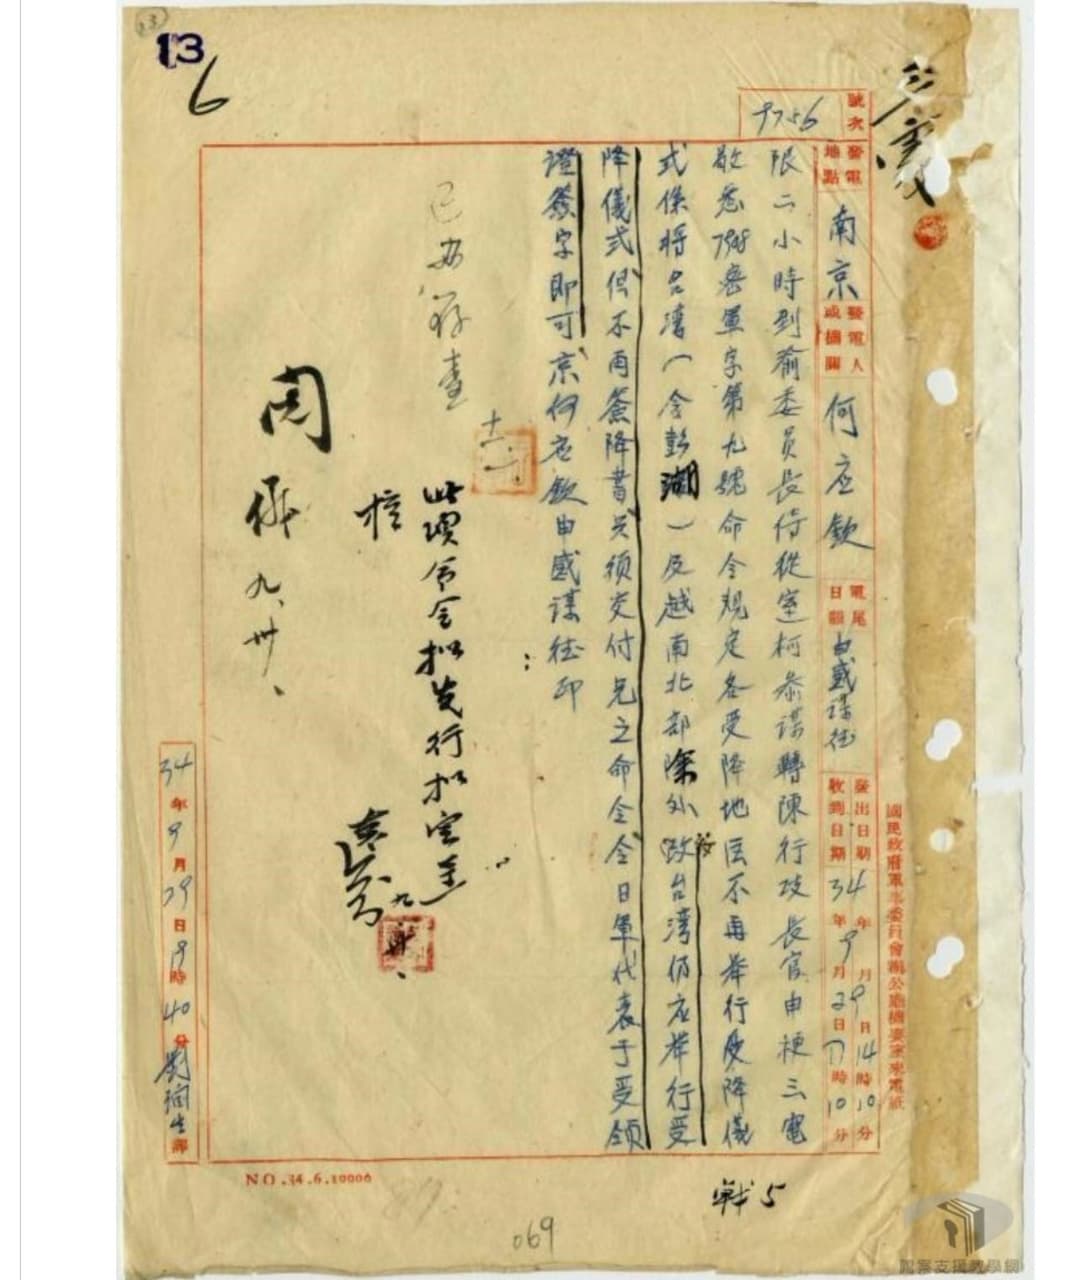 13
6
號次
9756
發電地點
南京
發電人或機關
何应欽
電尾日韻
由感謀往
發出日期 34年9月29日14時10分
收到日期 34年9月29日17時10分
國民政府軍事委員會辦公廳機要室來電紙
限二小時到渝委員長侍從室柯參謀轉陳行政長官申梗三電
敬悉7398密軍字第九號命令規定各受降地区不再举行受降儀
式係將台湾(含彭湖)及越南北部除外故台湾仍应举行受
降儀式但不再簽降書只須交付兄之命令令日軍代表于受領
證簽字即可京何应欽由感謀往印
此項命令拟先行拟定呈
核
九
閱
九、卅、
34年9月29日19時40分
譯
NO.34.6.10000
戰5
069